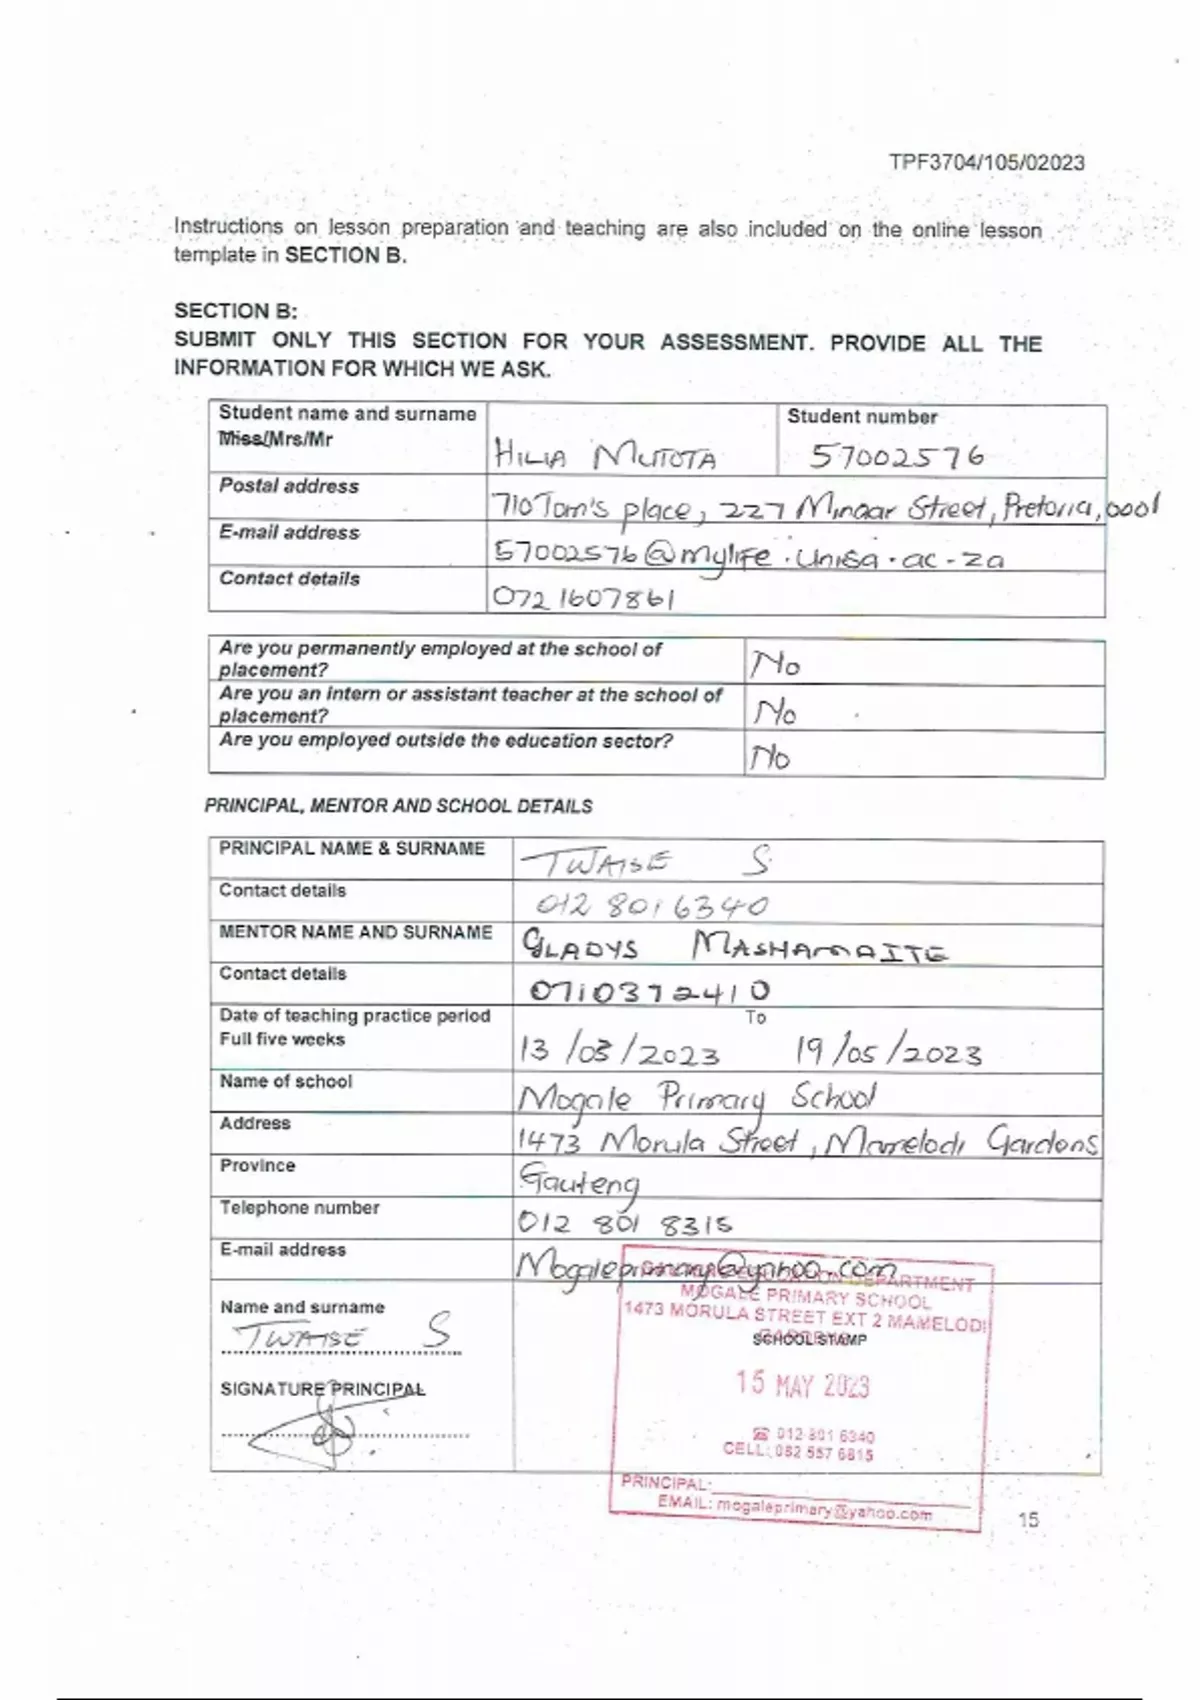 TPF3704/105/02023
Instructions on lesson preparation and teaching are also included on the online lesson
template in SECTION B.
SECTION B:
SUBMIT ONLY THIS SECTION FOR YOUR ASSESSMENT. PROVIDE ALL THE
INFORMATION FOR WHICH WE ASK.
Student name and surname
Miss/Mrs/Mr
HILIA MUTOTA
Student number
57002576
Postal address
710 Tom's place, 227 Minaar Street, Pretoria, 0001
E-mail address
57002576@mylife.unisa.ac-za
Contact details
072 1607861
Are you permanently employed at the school of
placement?
No
Are you an intern or assistant teacher at the school of
placement?
No
Are you employed outside the education sector?
No
PRINCIPAL, MENTOR AND SCHOOL DETAILS
PRINCIPAL NAME & SURNAME
TWAISE S
Contact details
012 801 6340
MENTOR NAME AND SURNAME
GLADYS MASHAMAITE
Contact details
0710372410
Date of teaching practice period
Full five weeks
To
13/03/2023 19/05/2023
Name of school
Mogale Primary School
Address
1473 Morula Street, Mamelodi Gardens
Province
Gauteng
Telephone number
012 801 8315
E-mail address
Mogaleprimary@yahoo.com
Name and surname
TWAISE S
SIGNATURE PRINCIPAL
EDUCATION DEPARTMENT
MOGALE PRIMARY SCHOOL
1473 MORULA STREET EXT 2 MAMELODI
SCHOOL STAMP
15 MAY 2023
☎ 012 801 6340
CELL: 082 557 6815
PRINCIPAL:
EMAIL: mogaleprimary@yahoo.com
15